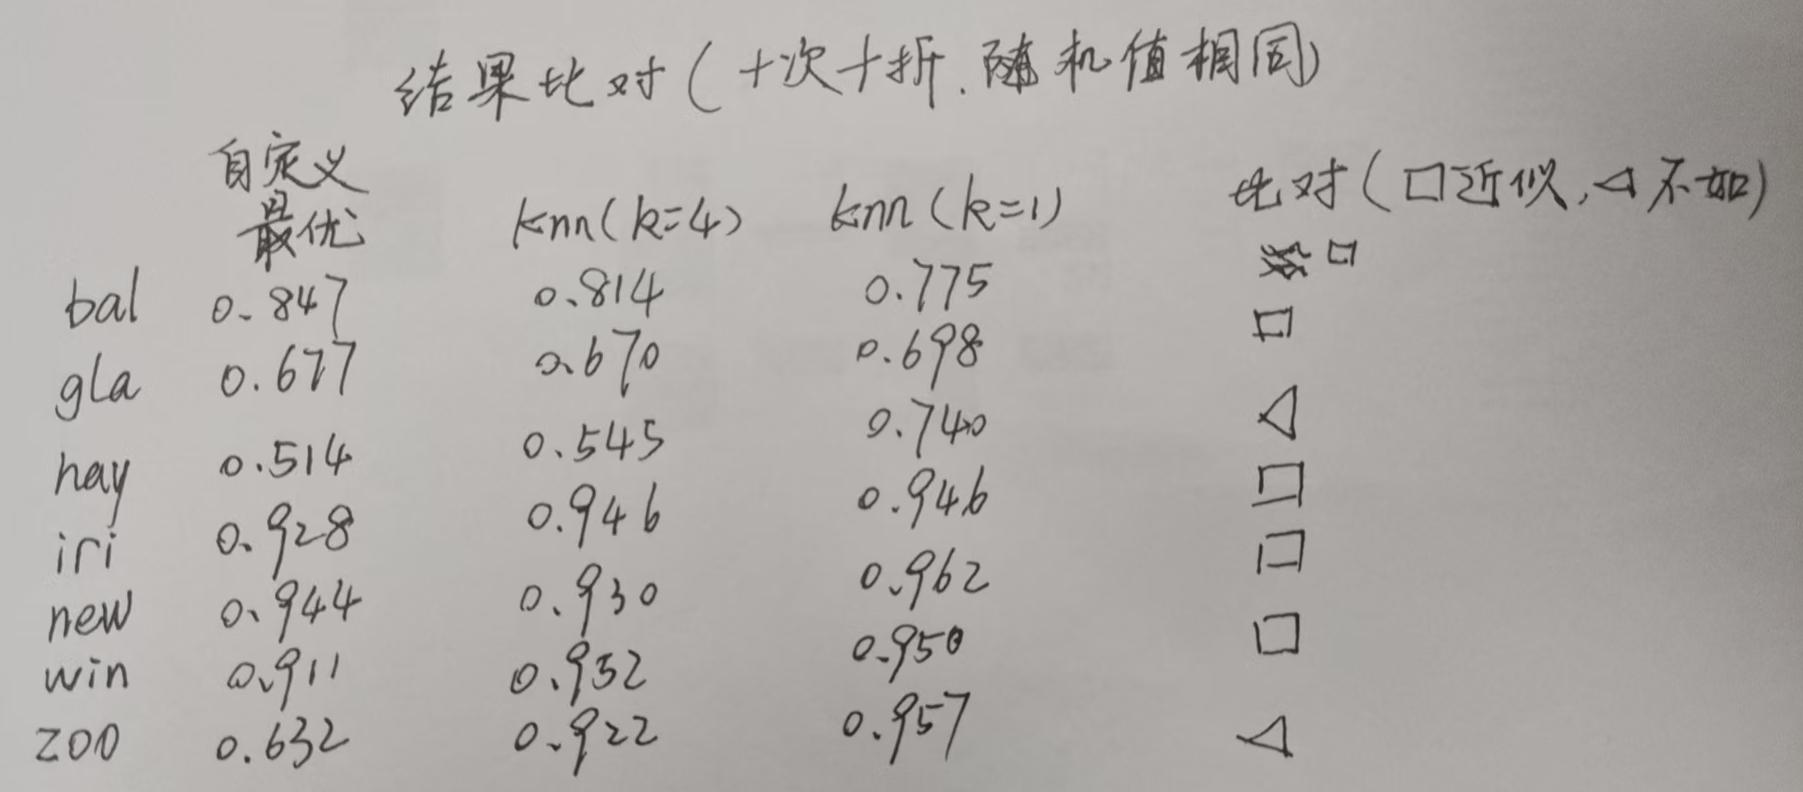 结果比对(十次十折.随机值相同)
自定义
最优 knn(k=4) knn(k=1) 比对(□近似,△不如)
bal 0.847 0.814 0.775 □
gla 0.677 0.670 0.698 □
hay 0.514 0.545 0.740 △
iri 0.928 0.946 0.946 □
new 0.944 0.930 0.962 □
win 0.911 0.932 0.950 □
zoo 0.632 0.922 0.957 △